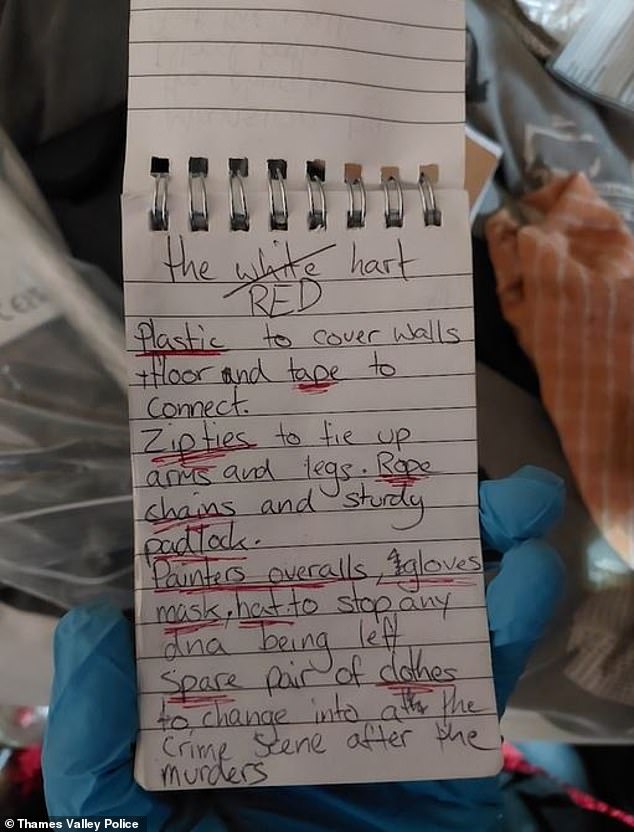 the white hart
RED
Plastic to cover walls
+floor and tape to
connect.
Zip ties to tie up
arms and legs. Rope
chains and sturdy
padlock.
Painters overalls, gloves
mask, hat to stop any
dna being left
Spare pair of clothes
to change into the
Crime Scene after the
murders
© Thames Valley Police